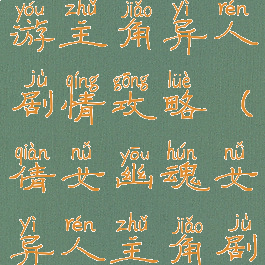 yóu zhǔ jiǎo yì rén
游主角异人
jù qíng gōng lüè
剧情攻略（
qiàn nǚ yōu hún nǚ
倩女幽魂女
yì rén zhǔ jiǎo jù
异人主角剧